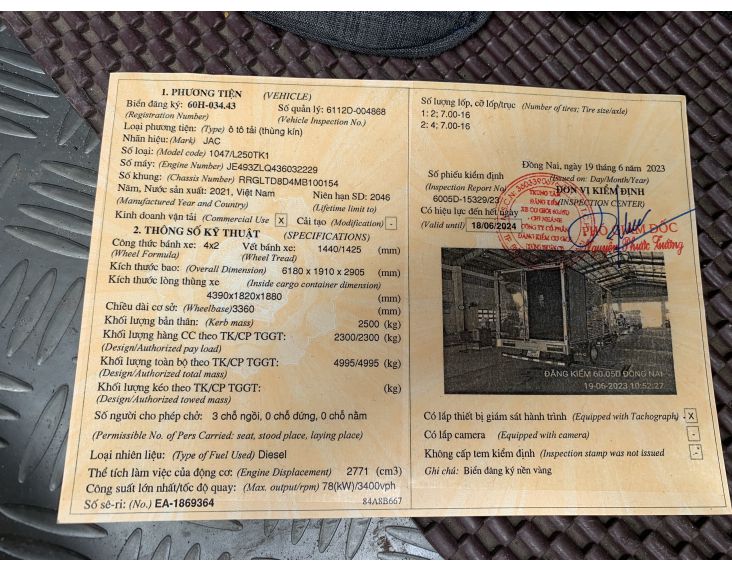 1. PHƯƠNG TIỆN (VEHICLE)
Biển đăng ký: 60H-034.43 Số quản lý: 6112D-004868
(Registration Number) (Vehicle Inspection No.)
Loại phương tiện: (Type) ô tô tải (thùng kín)
Nhãn hiệu: (Mark) JAC
Số loại: (Model code) 1047/L250TK1
Số máy: (Engine Number) JE493ZLQ436032229
Số khung: (Chassis Number) RRGLTD8D4MB100154
Năm, Nước sản xuất: 2021, Việt Nam Niên hạn SD: 2046
(Manufactured Year and Country) (Lifetime limit to)
Kinh doanh vận tải (Commercial Use) X Cải tạo (Modification) -
2. THÔNG SỐ KỸ THUẬT (SPECIFICATIONS)
Công thức bánh xe: 4x2 Vết bánh xe: 1440/1425 (mm)
(Wheel Formula) (Wheel Tread)
Kích thước bao: (Overall Dimension) 6180 x 1910 x 2905 (mm)
Kích thước lòng thùng xe (Inside cargo container dimension)
4390x1820x1880 (mm)
Chiều dài cơ sở: (Wheelbase) 3360 (mm)
Khối lượng bản thân: (Kerb mass) 2500 (kg)
Khối lượng hàng CC theo TK/CP TGGT: 2300/2300 (kg)
(Design/Authorized pay load)
Khối lượng toàn bộ theo TK/CP TGGT: 4995/4995 (kg)
(Design/Authorized total mass)
Khối lượng kéo theo TK/CP TGGT: (kg)
(Design/Authorized towed mass)
Số người cho phép chở: 3 chỗ ngồi, 0 chỗ đứng, 0 chỗ nằm
(Permissible No. of Pers Carried: seat, stood place, laying place)
Loại nhiên liệu: (Type of Fuel Used) Diesel
Thể tích làm việc của động cơ: (Engine Displacement) 2771 (cm3)
Công suất lớn nhất/tốc độ quay: (Max. output/rpm) 78(kW)/3400vph
Số sê-ri: (No.) EA-1869364 84A8B667
Số lượng lốp, cỡ lốp/trục (Number of tires; Tire size/axle)
1: 2; 7.00-16
2: 4; 7.00-16
Đồng Nai, ngày 19 tháng 6 năm 2023
Số phiếu kiểm định (Issued on: Day/Month/Year)
(Inspection Report No) ĐƠN VỊ KIỂM ĐỊNH
6005D-15329/23 (INSPECTION CENTER)
Có hiệu lực đến hết ngày
(Valid until) 18/06/2024 PHÓ GIÁM ĐỐC
Nguyễn Phước Trường
TRUNG TÂM
ĐĂNG KIỂM
XE CƠ GIỚI 60.05D
- CHI NHÁNH
CÔNG TY CỔ PHẦN
ĐĂNG KIỂM CƠ GIỚI
ĐĂNG KIỂM 60.05D ĐỒNG NAI
19-06-2023 10:52:27
Có lắp thiết bị giám sát hành trình (Equipped with Tachograph) X
Có lắp camera (Equipped with camera) -
Không cấp tem kiểm định (Inspection stamp was not issued -
Ghi chú: Biển đăng ký nền vàng